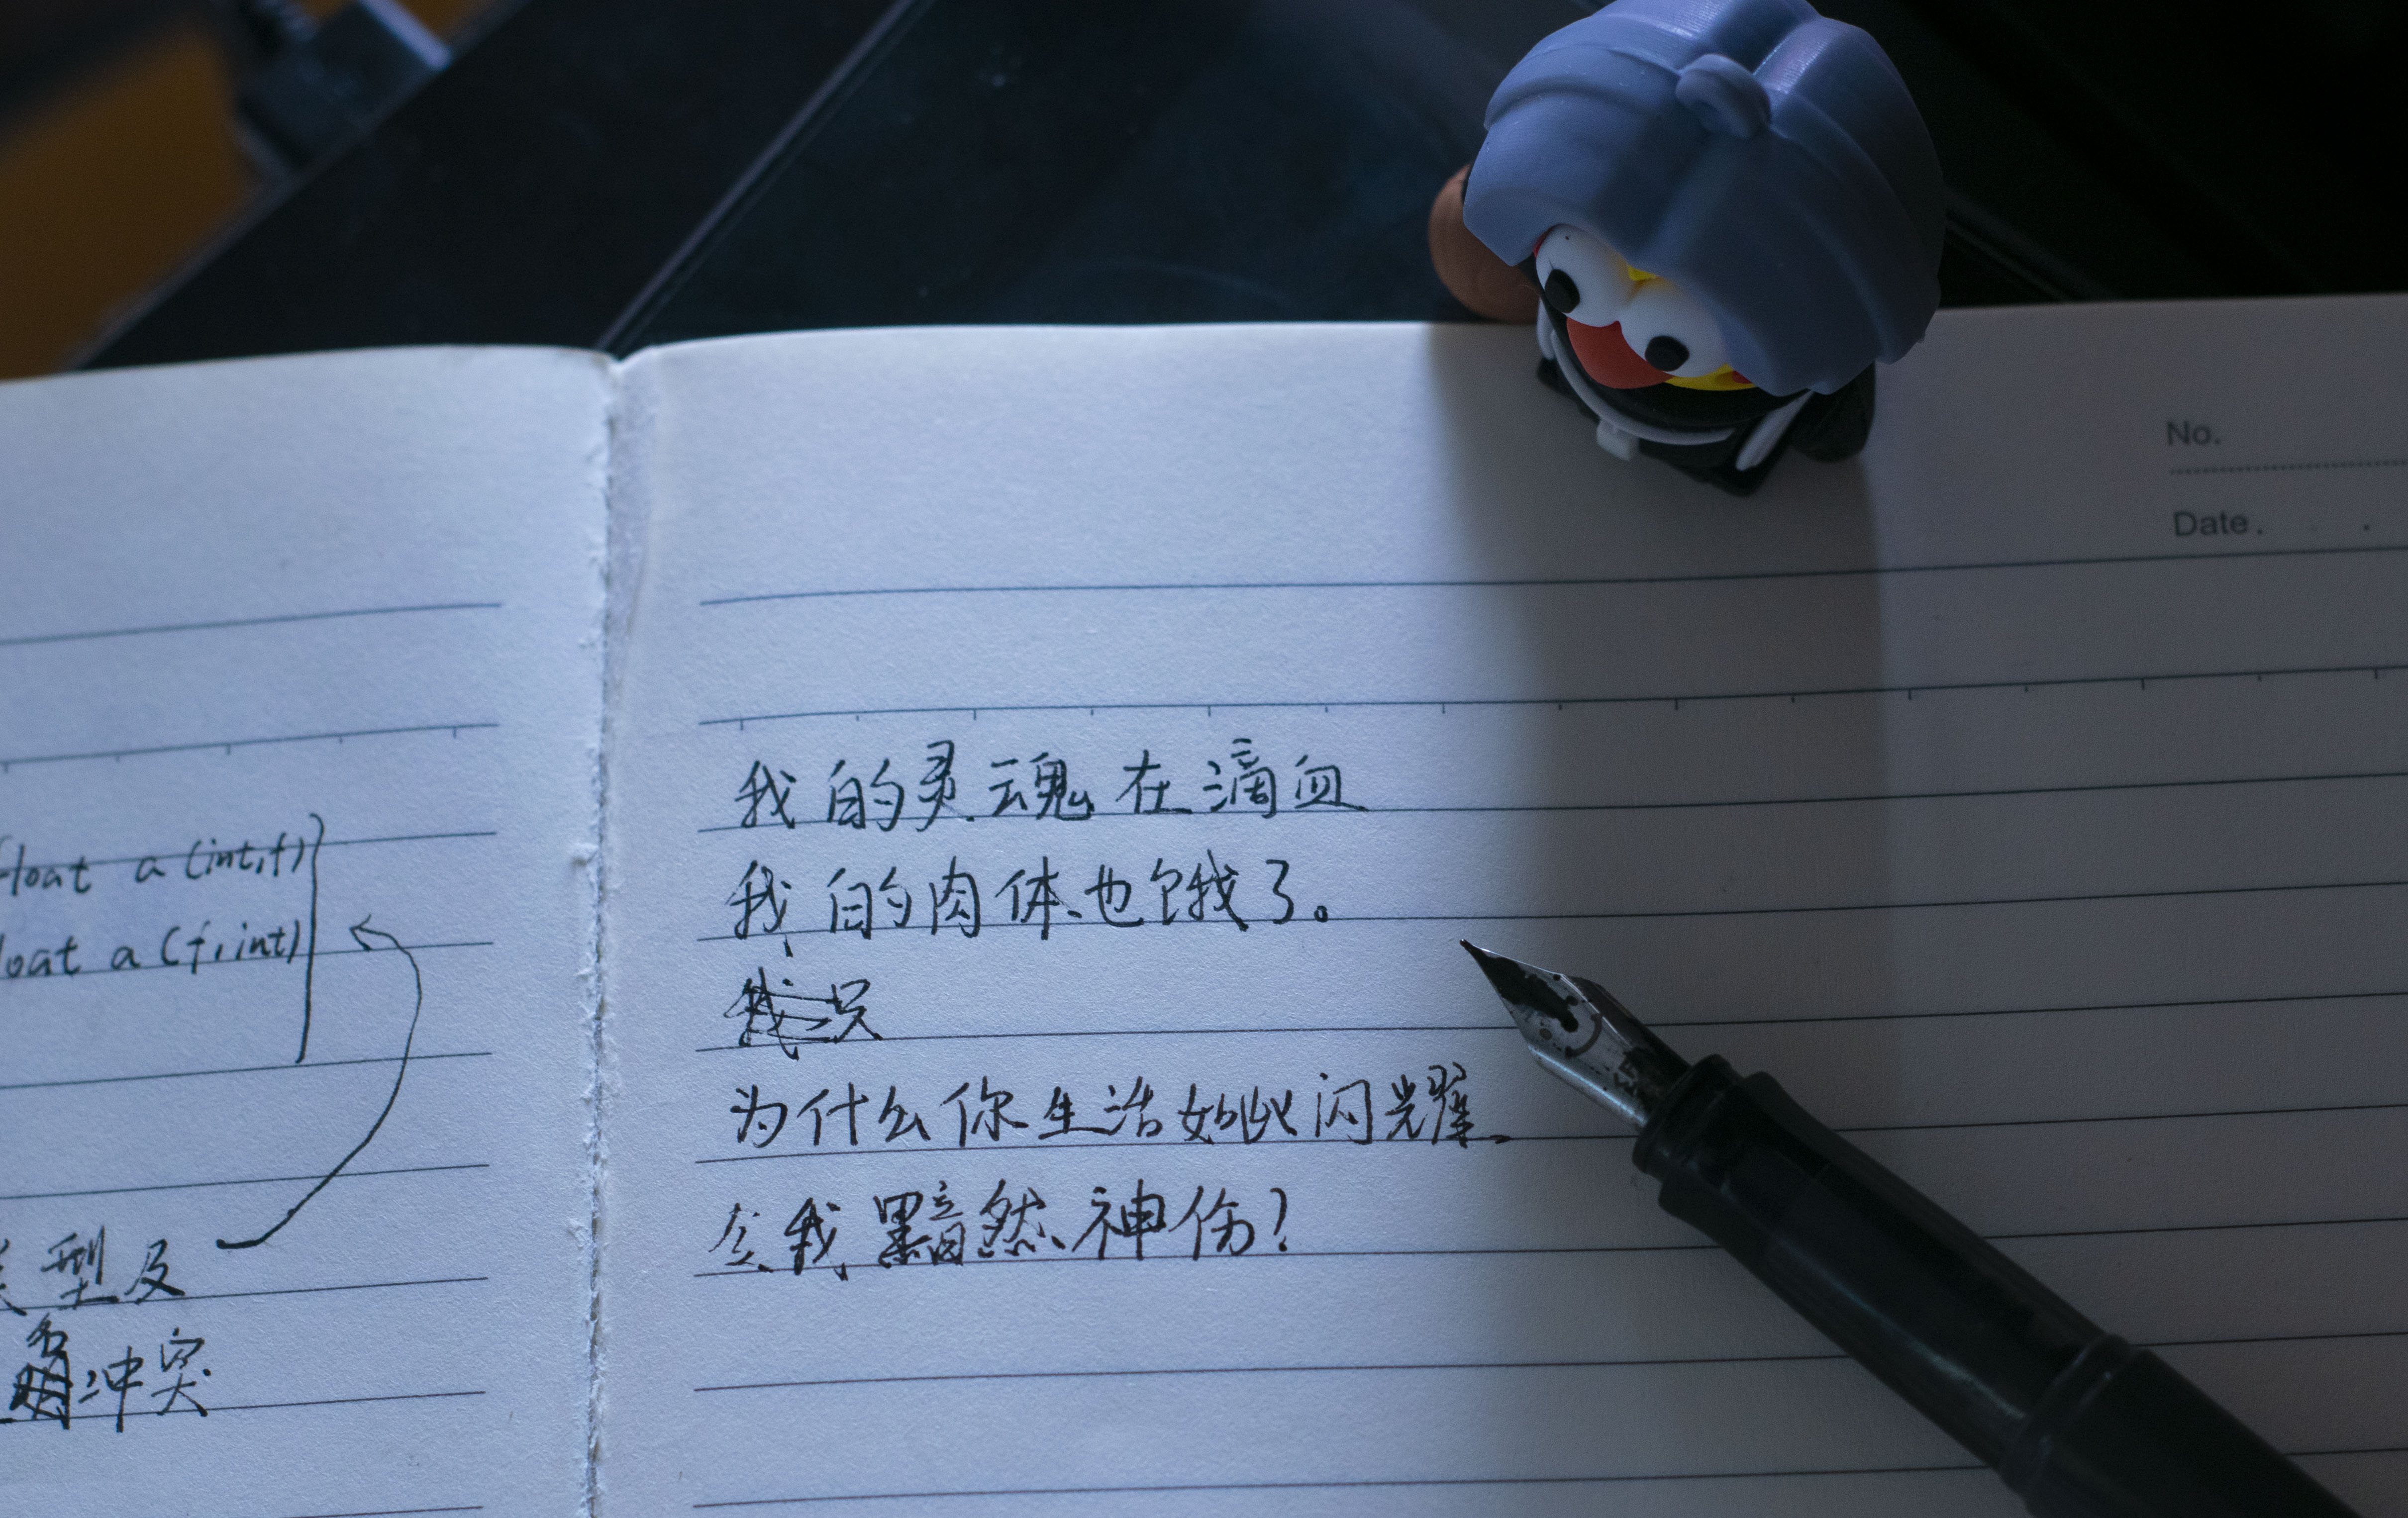 loat a (int, f)
loat a (f, int)
型及
冲突
No.
Date.
我的灵魂在滴血
我的肉体也饿了。
为什么你生活如此闪耀
令我黯然神伤?